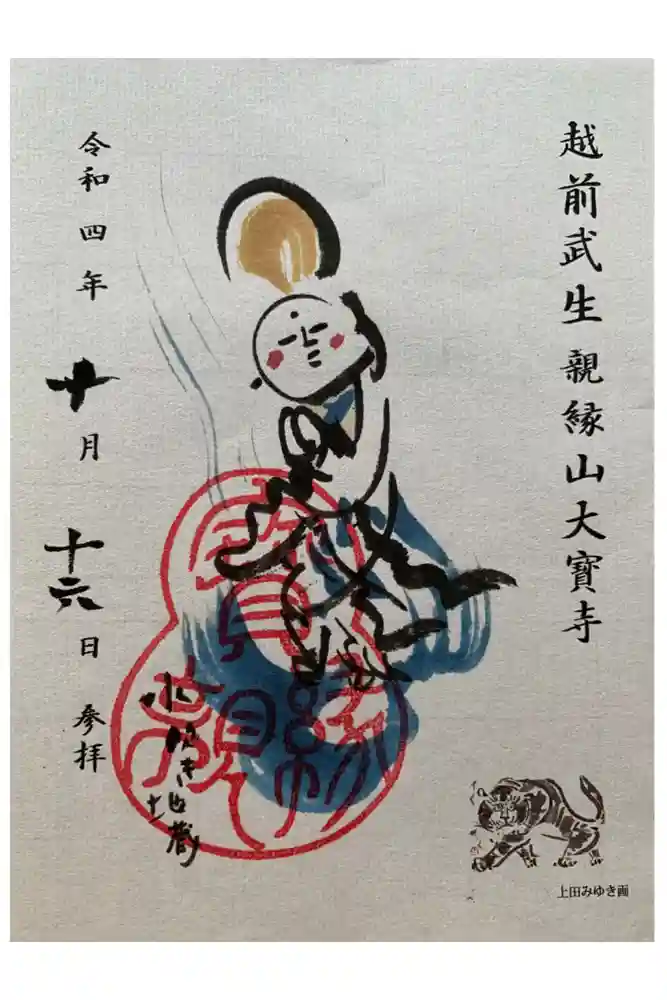 越前武生 親縁山大寶寺
上田みゆき画
地蔵
令和四年十月十六日 参拝